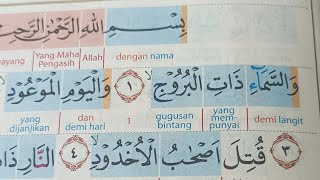 بِسْمِ اللّٰهِ الرَّحْمٰنِ
Yang Maha Allah dengan nama
Pengasih
وَالسَّمَاۤءِ ذَاتِ الْبُرُوْجِۙ ١ وَالْيَوْمِ الْمَوْعُوْدِۙ
yang dan 1 gugusan yang demi langit
dijanjikan demi hari bintang mem-
punyai
٣ قُتِلَ اَصْحٰبُ الْاُخْدُوْدِۙ ٤ النَّارِ